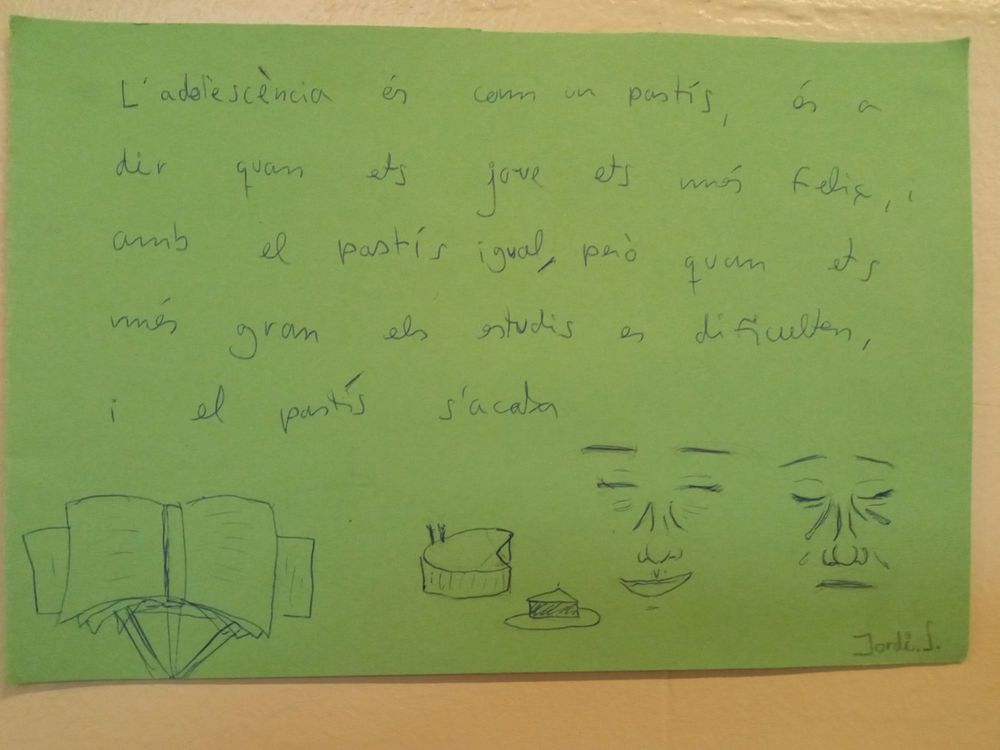 L'adolescència és com un pastís, és a
dir quan ets jove ets més feliç, i
amb el pastís igual, però quan ets
més gran els estudis es dificulten,
i el pastís s'acaba
Jordi.S.